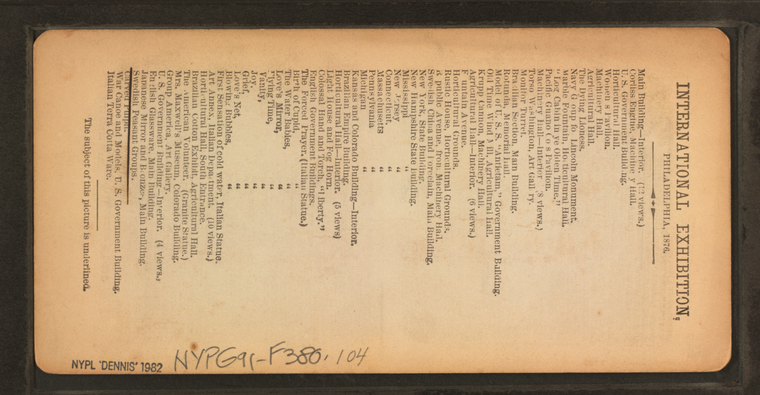 INTERNATIONAL EXHIBITION,
PHILADELPHIA, 1876.
Main Building—Interior. (12 views.)
Corliss Engine, Machinery Hall.
U. S. Government Building.
Horticultural Hall.
Women's Pavilion.
Machinery Hall.
Agricultural Hall.
The Dying Lioness.
Navy Group to Lincoln Monument.
Marble Fountain, Horticultural Hall.
"Log Cabin in ye Olden Time."
Pavilion.
Machinery Hall—Interior (8 views.)
Torso Washington, Art Gallery.
Monitor Turret.
Brazilian Section, Main Building.
Rodman Gun, Memorial Hall.
Model of U. S. S. "Antietam," Government Building.
Old Time Wind Mill, Agricultural Hall.
Krupp Guns, Machinery Hall.
Agricultural Hall—Interior. (6 views.)
Fountain Avenue.
Horticultural Grounds.
Rustic House, Horticultural Grounds.
Republic Avenue, from Machinery Hall.
Swedish China and Porcelain, Main Building.
New York State Building.
New Hampshire State Building.
Mississippi "
New Jersey "
Connecticut, "
Massachusetts "
Pennsylvania "
Michigan "
Kansas and Colorado Building—Interior.
Brazilian Empire Building.
Horticultural Hall—Interior. (5 views)
Light House and Fog Horn.
Colossal Hand and Torch, "Liberty."
English Government Buildings.
The Forced Prayer. (Italian Statue.)
Birth of Cupid, "
The Water Babies, "
Love's Mirror, "
Flying Time, "
Vanity, "
Joy, "
Grief, "
Love's Net, "
Blowing Bubbles, "
First Sensation of cool water, Italian Statue.
Art Annex, Italian Department. (10 views.)
Horticultural Hall, South Entrance.
Brazilian Cotton Exhibit, Agricultural Hall.
The American Volunteer. (Granite Statue.)
Mrs. Maxwell's Museum, Colorado Building.
Group America, Art Gallery.
U. S. Government Building—Interior. (4 views.)
English Glassware, Main Building.
Japanese Mirror and Bronzes, Main Building.
Swedish Peasant Groups.
Carved
War Canoe and Models, U. S. Government Building.
Italian Terra Cotta Ware.
The subject of this picture is underlined.
NYPL "DENNIS" 1982
NYPG91-F380.104